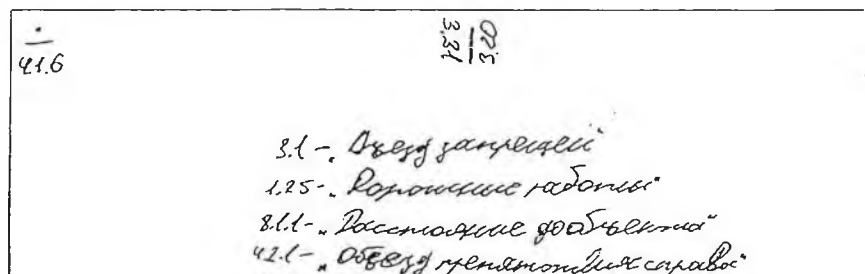 4.1.6
3.20
3.31
3.1 - "Въезд запрещен"
1.25 - "Дорожные работы"
8.1.1 - "Расстояние до объекта"
4.2.1 - "Объезд препятствия справа"